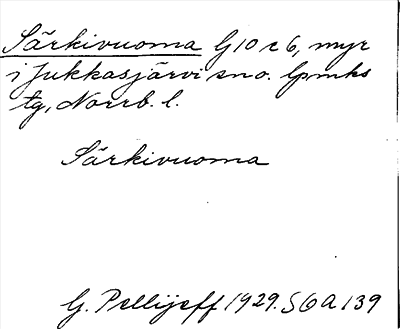 Särkivuoma G 10 c 6, myr
i Jukkasjärvi sn o. lpmks
tg, Norrb. l.
Särkivuoma
G. Pellijeff 1929. SOA 139